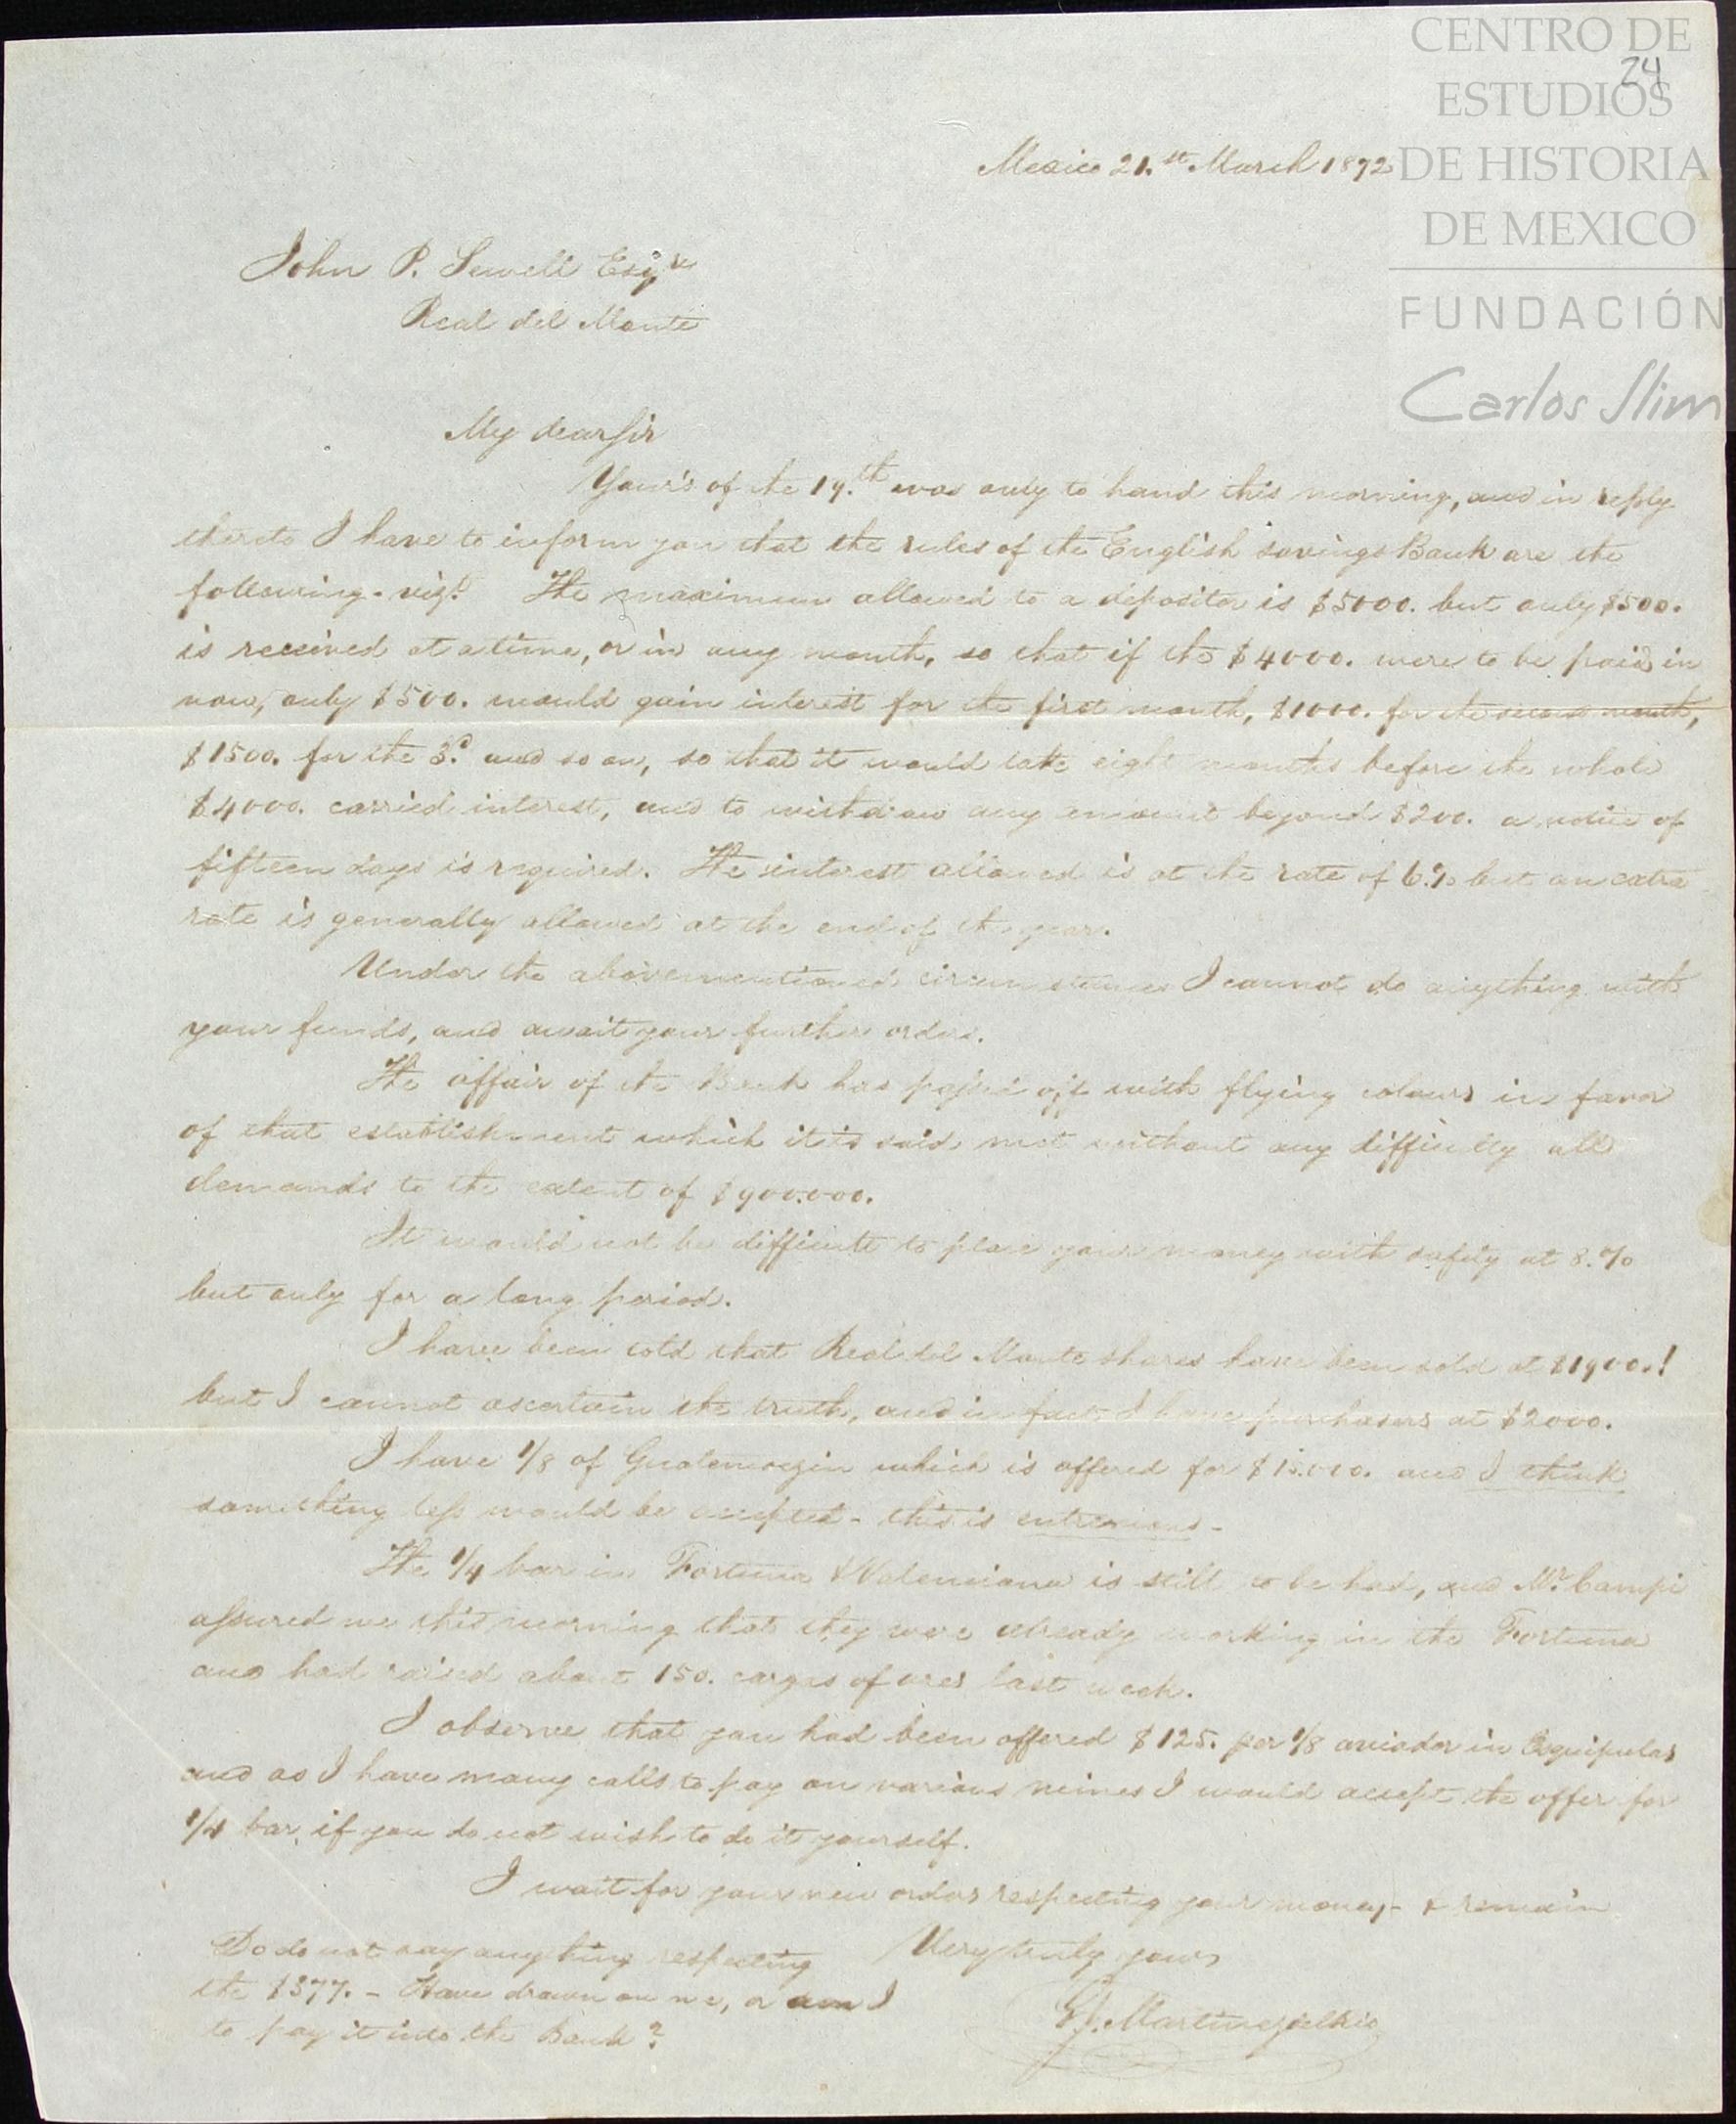 CENTRO DE
24
ESTUDIOS
DE HISTORIA
DE MEXICO
FUNDACIÓN
Carlos Slim
Mexico 21.st March 1872
John P. Sewell Esqre
Real del Monte
My dear Sir
Your's of the 19.th was only to hand this morning, and in reply
thereto I have to inform you that the rules of the English savings Bank are the
following. vizt. The maximum allowed to a depositor is $5000. but only $500.
is received at a time, or in any month, so that if the $4000. were to be paid in
now, only $500. would gain interest for the first month, $1000. for the second month,
$1500. for the 3.d and so on, so that it would take eight months before the whole
$4000. carried interest, and to withdraw any amount beyond $200. a notice of
fifteen days is required. The interest allowed is at the rate of 6.% but an extra
rate is generally allowed at the end of the year.
Under the abovementioned circumstances I cannot do anything with
your funds, and await your further orders.
The affair of the Bank has passed off with flying colours in favor
of that establishment which it is said met without any difficulty all
demands to the extent of $900.000.
It would not be difficult to place your money with safety at 8.%
but only for a long period.
I have been told that Real del Monte shares have been sold at $1900.!
but I cannot ascertain the truth, and in fact I have purchasers at $2000.
I have 1/8 of Guatemozin which is offered for $15.000. and I think
something less would be accepted - this is entre nous -
The 1/4 bar in Fortuna & Valenciana is still to be had, and Mr. Campi
assured me this morning that they were already working in the Fortuna
and had raised about 150. cargas of ores last week.
I observe that you had been offered $125. per 1/8 aviador in Esquipulas
and as I have many calls to pay on various mines I would accept the offer for
1/4 bar, if you do not wish to do it yourself.
I wait for your new orders respecting your money - & remain
Very truly yours
Do do not say anything respecting
the $377. - Have drawn on me, or am I
to pay it into the Bank?
Martinez del Rio